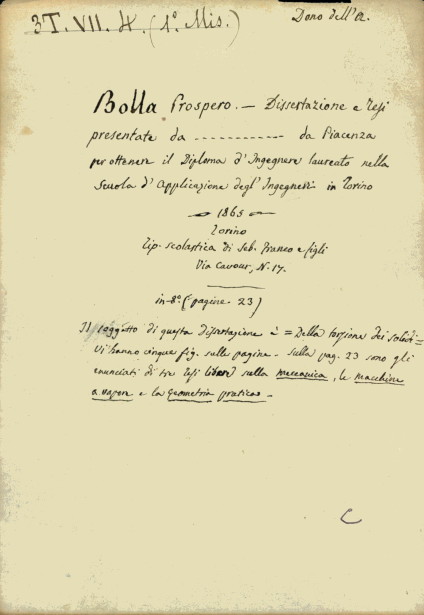 3T. VII. 4. (1º. Mis.)
Dono dell'A.
Bolla Prospero. — Dissertazione e Tesi
presentate da ------------ da Piacenza
per ottenere il Diploma d'Ingegnere laureato nella
Scuola d'Applicazione degl'Ingegneri in Torino
1865
Torino
Tip. scolastica di Seb. Franco e figli
Via Cavour, N. 17.
in-8º. (pagine 23)
Il soggetto di questa dissertazione è = Della torsione dei solidi =
Vi hanno cinque fig. sulle pagine - sulla pag. 23 sono gli
enunciati di tre Tesi libere sulla meccanica, le macchine
a vapore e la geometria pratica -
C